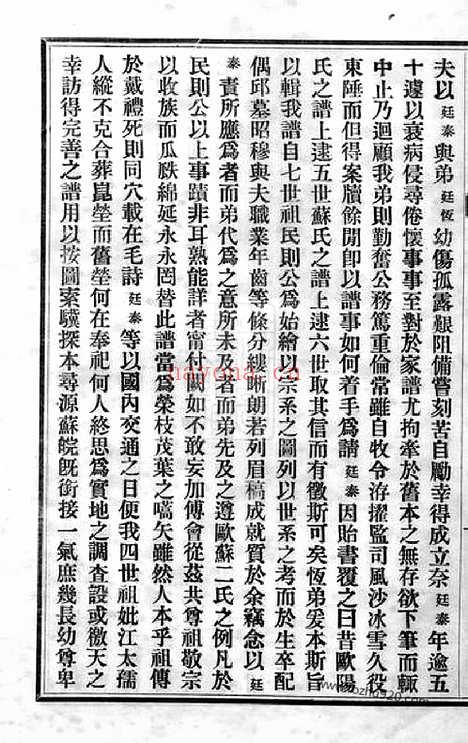 夫以廷泰與弟廷恆幼傷孤露艱阻備嘗刻苦自勵幸得成立奈廷泰年逾五
十遽以衰病侵尋倦懷事事至對於家譜尤拘牽於舊本之無存欲下筆而輒
中止乃迴顧我弟則勤奮公務篤重倫常雖自牧令洊擢監司風沙冰雪久役
東陲而但得案牘餘閒卽以譜事如何着手爲請廷泰因貽書覆之曰昔歐陽
氏之譜上逮五世蘇氏之譜上逮六世取其信而有徵斯可矣恆弟爰本斯旨
以輯我譜自七世祖民則公爲始繪以宗系之圖列以世系之考而於生卒配
偶邱墓昭穆與夫職業年齒等條分縷晰朗若列眉稿成就質於余竊念以廷
泰責所應爲者而弟代爲之意所未及者而弟先及之遵歐蘇二氏之例凡於
民則公以上事蹟非耳熟能詳者甯付闕如不敢妄加傅會從茲共尊祖敬宗
以收族而瓜瓞綿延永永罔替此譜當爲榮枝茂葉之嚆矢雖然人本乎祖傳
於戴禮死則同穴載在毛詩廷泰等以國內交通之日便我四世祖妣江太孺
人縱不克合葬崑塋而舊塋何在奉祀何人終思爲實地之調查設或徼天之
幸訪得完善之譜用以按圖索驥探本尋源蘇皖旣銜接一氣庶幾長幼尊卑
nayona.cn